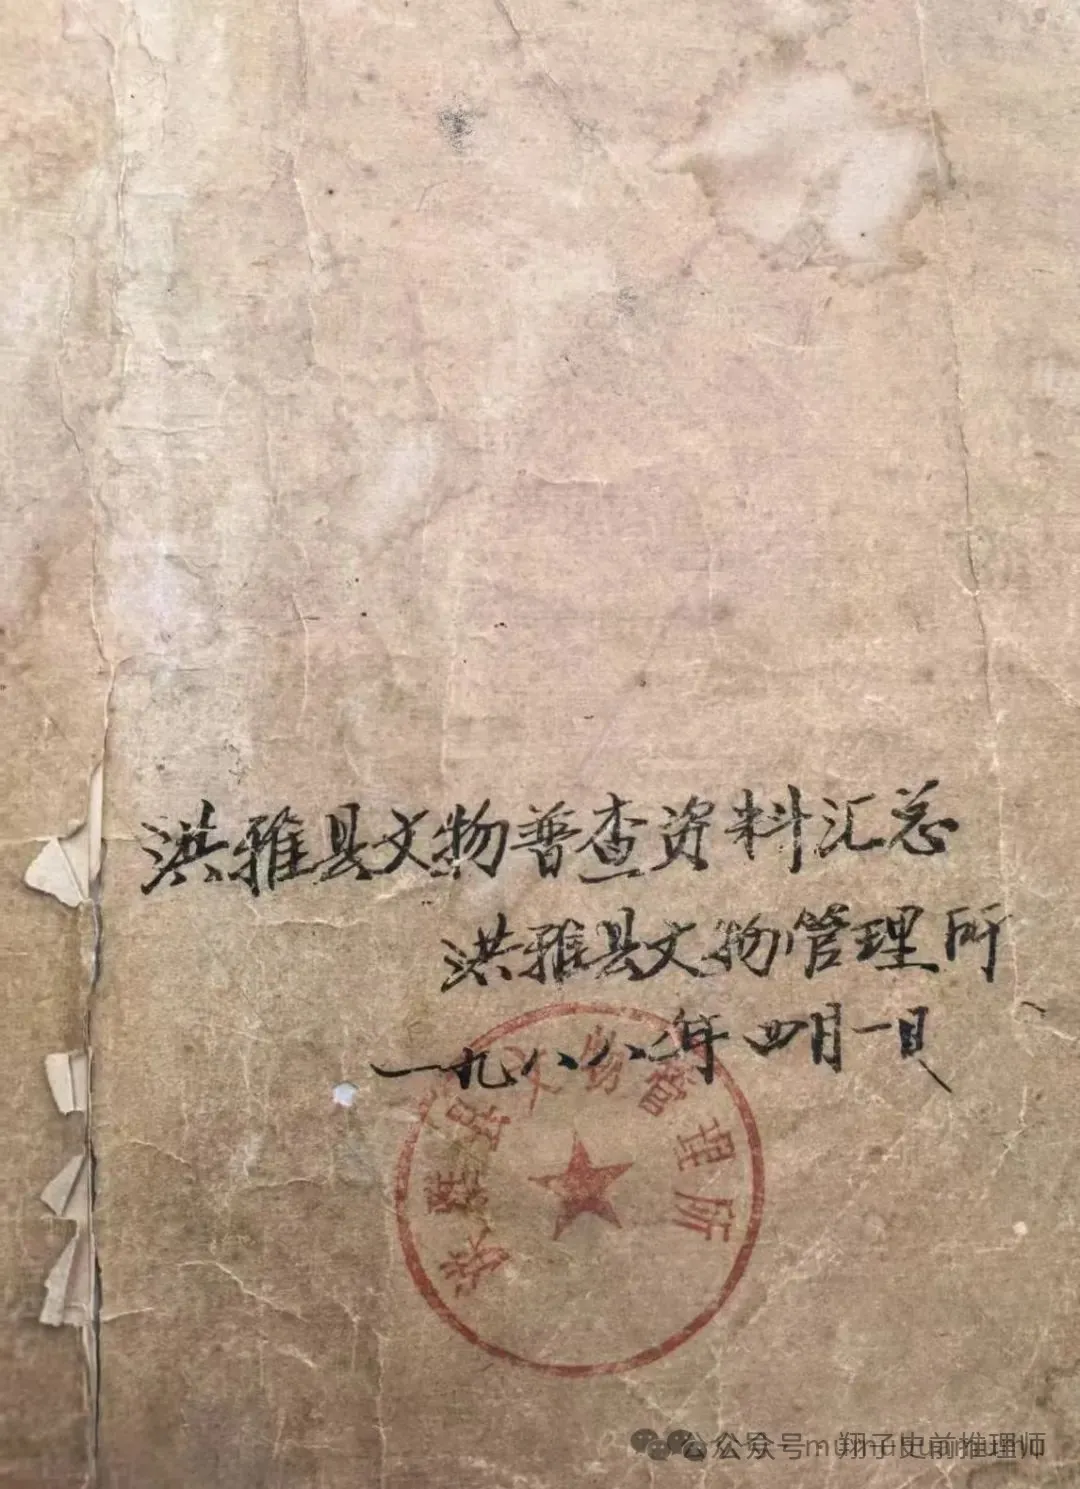 洪雅县文物普查资料汇总
洪雅县文物管理所
一九八八年四月一日
洪雅县文物管理所
公众号·翔子史前推理师